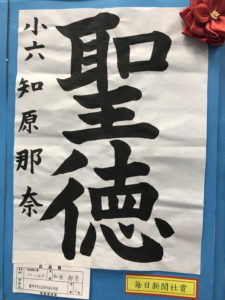 聖徳
小六 知原那奈
毎日新聞社賞